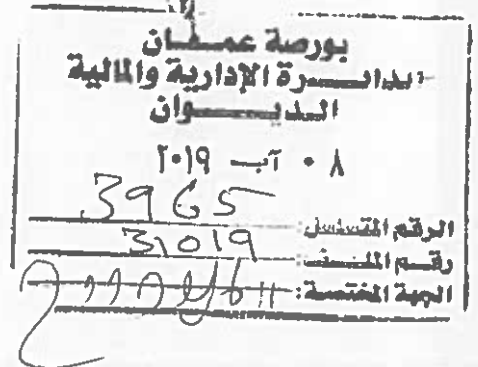 بورصة عمان
الدائرة الإدارية والمالية
الديوان
٠٨ آب ٢٠١٩
الرقم المتسلسل: 3965
رقم الملف: 31019
الجهة المختصة: